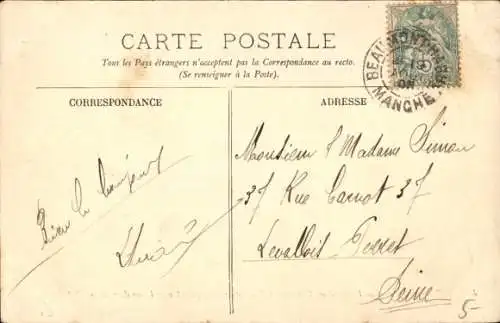 CARTE POSTALE
Tous les Pays étrangers n'acceptent pas la Correspondance au recto.
(Se renseigner à la Poste).
CORRESPONDANCE
ADRESSE
BEAUMONT-HAGUE
MANCHE
Bien le bonjour
Monsieur & Madame Simon
37 Rue Carnot 37
Levallois Perret
Seine
5-